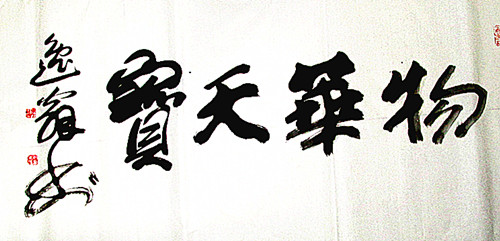 物華天寶
逸翁书